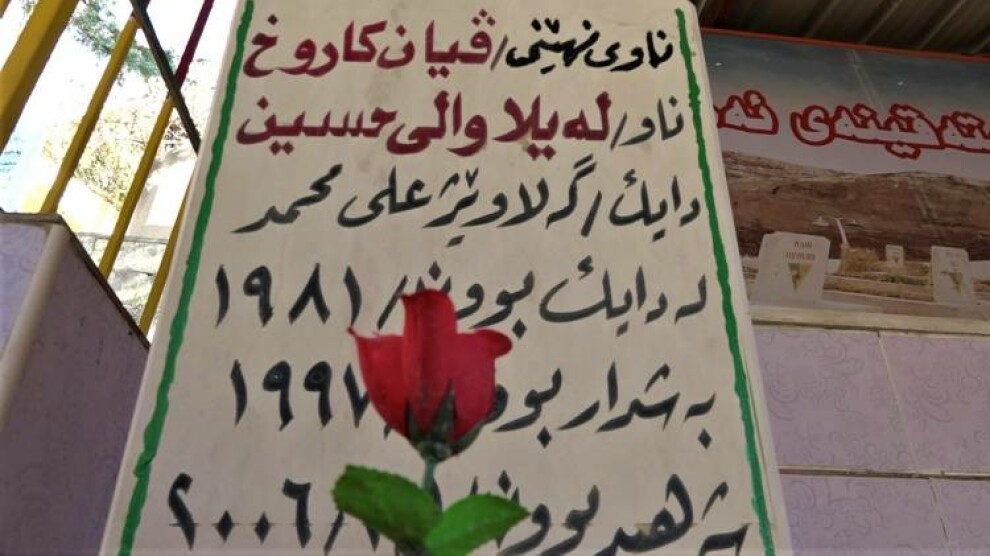 ناوی نهێنی/ڤیان کاروخ
ناو/له یلا والی حسین
دایك/گه لاوێژ علی محمد
له دایك بوون/ ١٩٨١
به شدار بوون ١٩٩٧
شه هید بوون ٢٠٠٦/
قیندی